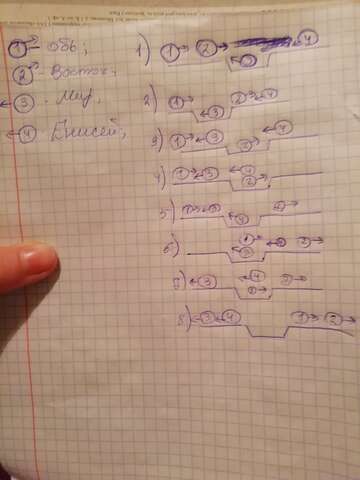 1 - Обь;
2 - Восток;
3 - Мир,
4 - Енисей,
1) 1 2 3 4
2) 1 3 2 4
3) 1 3 2 4
4) 1 3 4 2
5) 1 3 4 2
6) 1 3 2
7) 3 4 1 2
8) 3 4 1 2